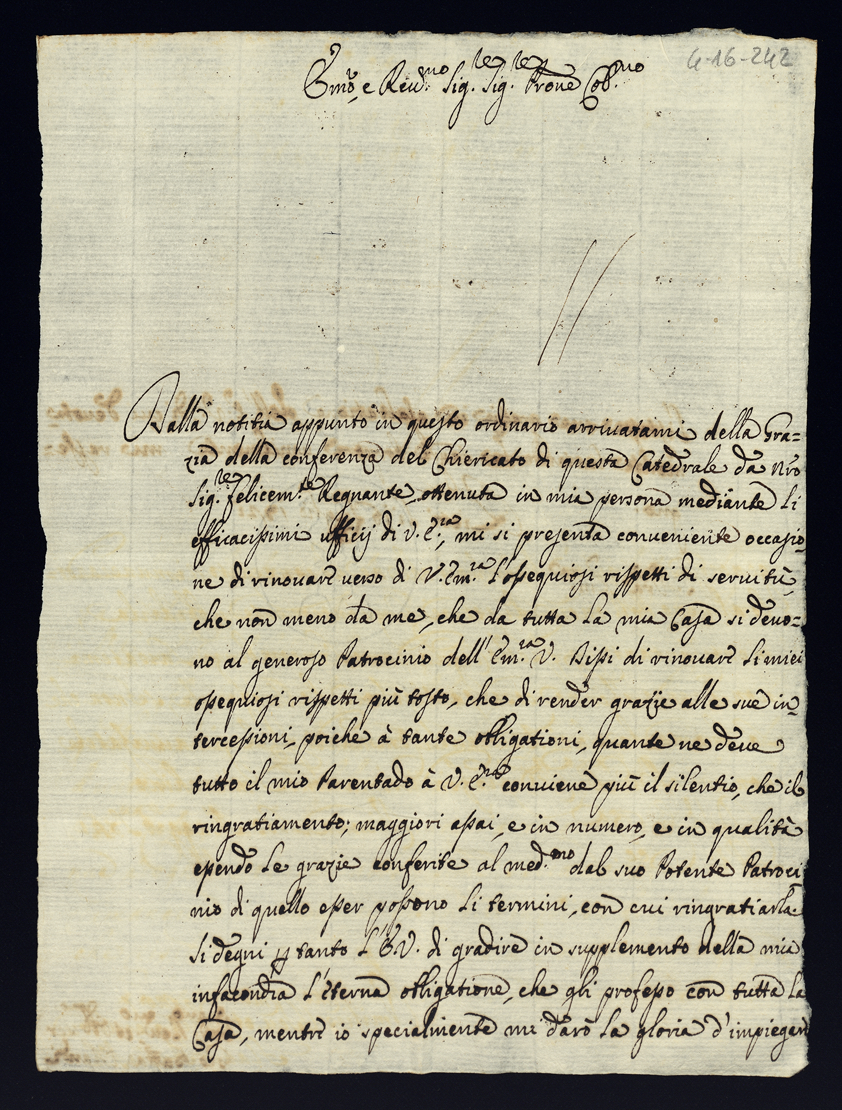 4-16-242
Emo. e Reu.mo Sig.re Sig.re Prone Col.mo
Dalla notitia appunto in questo ordinario arriuatami della Gra=
zia della conferenza del Chiericato di questa Catedrale da Nro
Sig.re felicem.te Regnante, ottenuta in mia persona mediante li
efficacissimi ufficij di V. E.za, mi si presenta conueniente occasio=
ne di rinouare uerso di V. Em.za l'ossequiosi rispetti di seruitù,
che non meno da me, che da tutta la mia Casa si deuo=
no al generoso Patrocinio dell' Em.za V. Dissi di rinouare li miei
ossequiosi rispetti più tosto, che di render grazie alle sue in=
tercessioni, poiche à tante obligationi, quante ne deue
tutto il mio Parentado à V. E.za conuiene più il silentio, che il
ringratiamento; maggiori assai, e in numero, e in qualità
essendo le grazie conferite al med.mo dal suo Potente Patroci=
nio di quello esser possono li termini, con cui ringratiarla.
Si degni p tanto l'E.V. di gradire in supplemento della mia
infacondia l'eterna obligatione, che gli professo con tutta la
Casa, mentre io specialmente mi darò la gloria d'impiegare